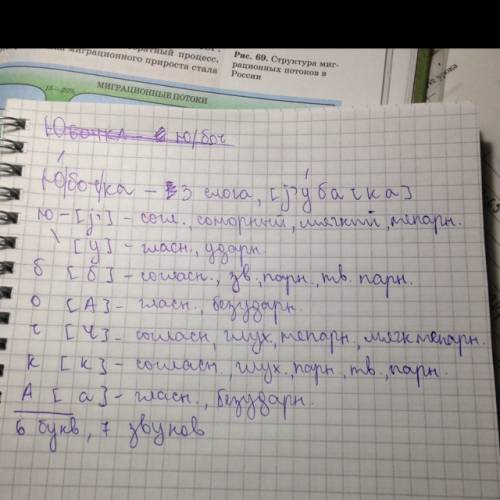 братный процесс,
миграционного прироста стала
Рис. 69. Структура миг-
рационных потоков в
России
МИГРАЦИОННЫЕ ПОТОКИ
Юбочка - Ю/боч
Ю/боч/ка - 3 слога, [j'у́бачка]
ю - [j'] - согл., сонорный, мягкий, непарн.
\ [у] - гласн., ударн.
б [б] - согласн., зв., парн., тв. парн.
о [А] - гласн., безударн.
ч [ч] - согласн, глух, непарн, мягк непарн.
к [к] - согласн., глух., парн, тв., парн.
А [а] - гласн., безударн.
6 букв, 7 звуков